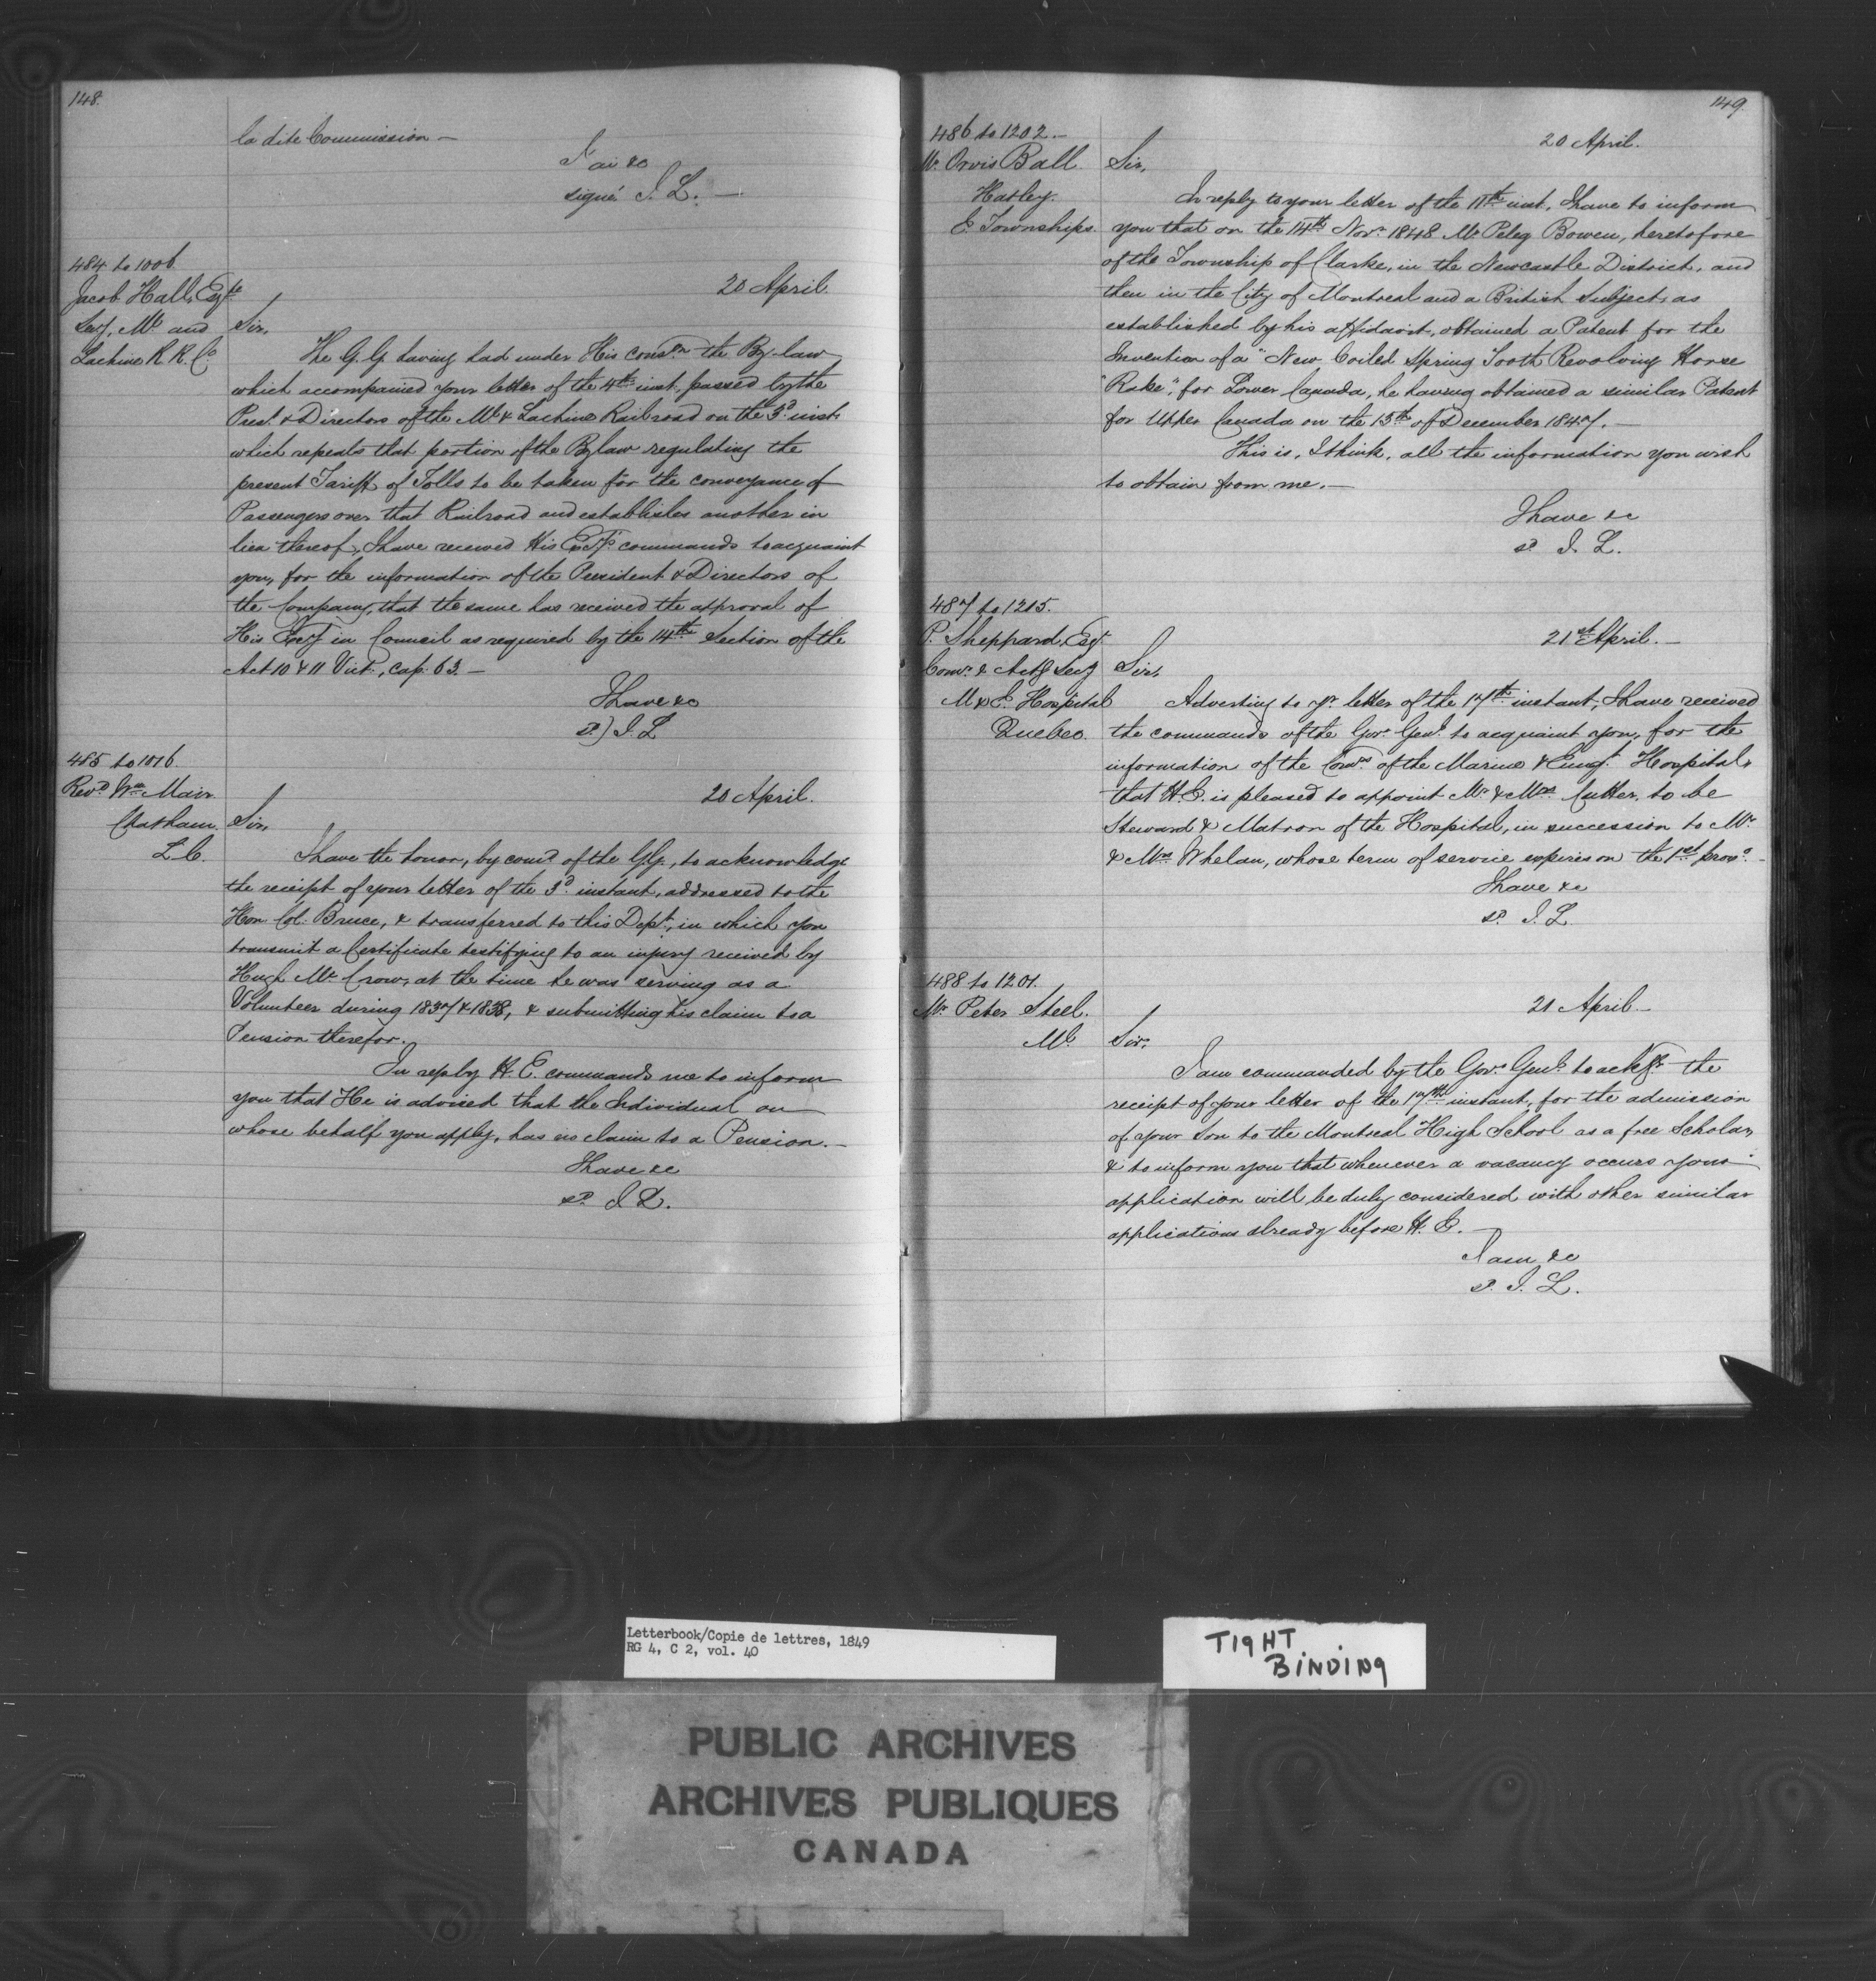 148.
la dite Commission —
J'ai &c
signé J. L. —
484 to 1006
Jacob Hall, Esqre
Secy, Ml and
Lachine R. R. Co
20 April.
Sir,
The G. G. having had under His consn the By-law
which accompanied your letter of the 4th inst. passed by the
Prest. & Directors of the Ml & Lachine Railroad on the 3d inst.
which repeals that portion of the Bylaw regulating the
present Tariff of Tolls to be taken for the conveyance of
Passengers over that Railroad and establishes another in
lieu thereof, I have received His Excy's commands to acquaint
you, for the information of the President & Directors of
the Company, that the same has received the approval of
His Excy in Council as required by the 14th Section of the
Act 10 & 11 Vict., cap. 63. —
I have &c
sd) J. L
485 to 1016
Revd Wm Mair
Chatham
L. C.
20 April.
Sir,
I have the honor, by comd of the G.G., to acknowledge
the receipt of your letter of the 3d instant, addressed to the
Hon Col. Bruce, & transferred to this Dept, in which you
transmit a Certificate testifying to an injury received by
Hugh McCrow, at the time he was serving as a
Volunteer during 1837 & 1838, & submitting his claim to a
Pension therefor.
In reply H. E. commands me to inform
you that He is advised that the Individual on
whose behalf you apply, has no claim to a Pension. —
I have &c
sd J. L.
149.
486 to 1202. —
Mr Orvis Ball
Hatley.
E. Townships.
20 April.
Sir,
In reply to your letter of the 11th inst. I have to inform
you that on the 14th Novr 1848 Mr Peleg Bowen, heretofore
of the Township of Clarke, in the Newcastle District, and
then in the City of Montreal and a British Subject, as
established by his affidavit, obtained a Patent for the
Invention of a "New Coiled Spring Tooth Revolving Horse
"Rake", for Lower Canada, he having obtained a similar Patent
for Upper Canada on the 15th of December 1847. —
This is, I think, all the information you wish
to obtain from me. —
I have &c
sd J. L.
487 to 1215.
P. Sheppard, Esqr
Comr & Actg Secy
M & E. Hospital
Quebec.
21st April. —
Sir,
Adverting to yr letter of the 17th instant, I have received
the commands of the Govr Genl to acquaint you, for the
information of the Comrs of the Marine & Emigt Hospital,
that H.E. is pleased to appoint Mr & Mrs Cutter, to be
Steward & Matron of the Hospital, in succession to Mr
& Mrs Whelan, whose term of service expires on the 1st proxo. —
I have &c
sd J. L.
488 to 1201.
Mr Peter Steel.
Ml
21 April —
Sir,
I am commanded by the Govr Genl to ackge the
receipt of your letter of the 17th instant, for the admission
of your Son to the Montreal High School as a free Scholar,
& to inform you that whenever a vacancy occurs your
application will be duly considered with other similar
applications already before H. E. —
I am &c
sd J. L.
Letterbook/Copie de lettres, 1849
RG 4, C 2, vol. 40
TIGHT
BINDING
PUBLIC ARCHIVES
ARCHIVES PUBLIQUES
CANADA